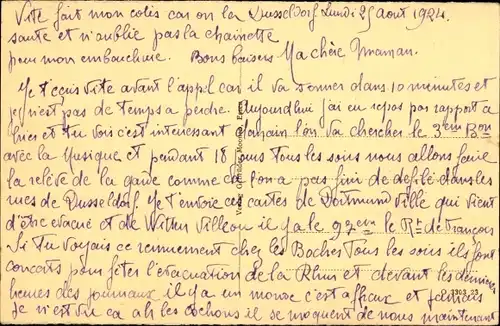 Vite fait mon colis car on la Dusseldorf Lundi 25 Aout 1924.
sante et n'oublie pas la chainette
pour mon embauchure. Bons baisers Ma chère Maman.
Je t'ecris vite avant l'appel car il va sonner dans 10 minutes et
je n'est pas de temps a perdre. Aujourd'hui j'ai eu repos par rapport a
hier et tu vois c'est interessant demain l'on va chercher le 3eme Bon
avec la Musique et pendant 18 jours tous les soirs nous allons faire
la relève de la garde comme ca l'on a pas fini de defilé dans les
rues de Dusseldorf. Je t'envoie ces cartes de Dortmund ville qui vient
d'être evacué et de Witten ville ou il y a le 97eme le Rt de François
Si tu voyais ce remuement chez les Boches Tous les soirs ils font
concerts pour fêter l'évacuation de la Rhur et devant les dernières
heures des journaux il y a un monde c'est affreux et
je n'est vu ca ah les cochons il se moquent de nous maintenant